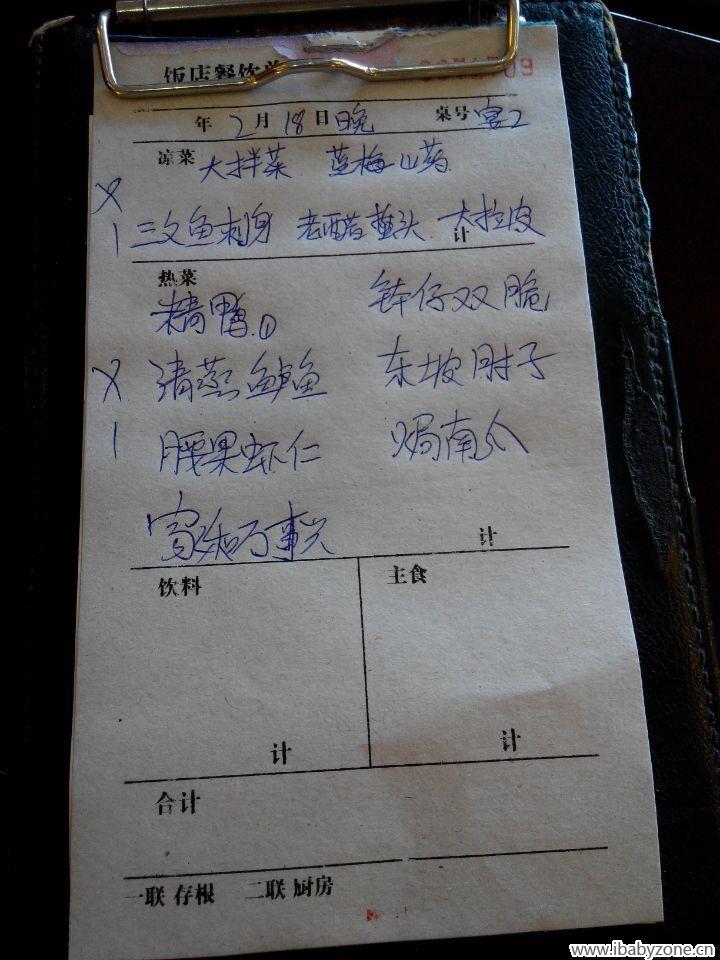 饭店餐饮单
年 2月 18日晚 桌号 宫2
凉菜 大拌菜 蓝梅山药
X
1 三文鱼刺身 老醋蜇头 大拉皮
计
热菜
精鸭① 钵仔双脆
X 清蒸鲈鱼 东坡肘子
1 腰果虾仁 焗南瓜
家和万事兴
计
饮料 主食
计 计
合计
一联 存根 二联 厨房
www.ibabyzone.cn